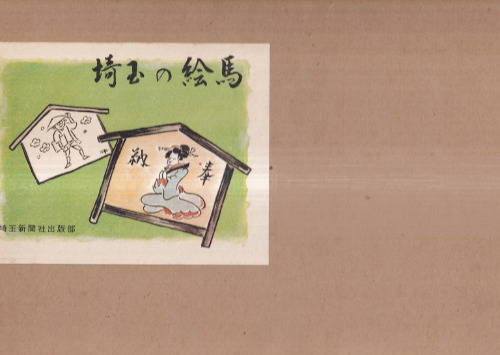 埼玉の絵馬
奉
献
埼玉新聞社出版部